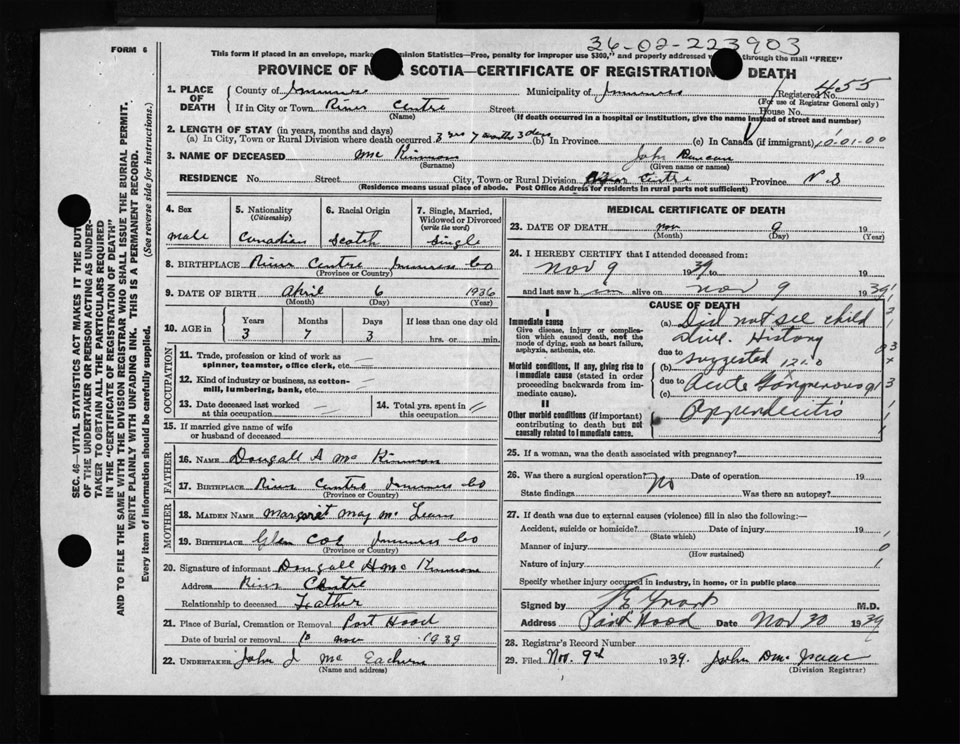 36-02-223903
FORM 6
This form if placed in an envelope, marke minion Statistics—Free, penalty for improper use $300," and properly addressed through the mail "FREE"
PROVINCE OF N A SCOTIA—CERTIFICATE OF REGISTRATION DEATH
Registered No. 455
(For use of Registrar General only)
1. PLACE OF DEATH
County of Inverness Municipality of Inverness
If in City or Town River Centre Street House No.
(Name) (If death occurred in a hospital or institution, give the name instead of street and number)
2. LENGTH OF STAY (in years, months and days)
(a) In City, Town or Rural Division where death occurred 3 yrs 7 months 3 days (b) In Province (c) In Canada (if immigrant) 10-01-00
3. NAME OF DECEASED Mc Kinnon John Duncan
(Surname) (Given name or names)
RESIDENCE No. Street City, Town or Rural Division River Centre Province N.S
(Residence means usual place of abode. Post Office Address for residents in rural parts not sufficient)
4. Sex
male
5. Nationality
(Citizenship)
Canadian
6. Racial Origin
Scotch
7. Single, Married, Widowed or Divorced
(write the word)
Single
8. BIRTHPLACE River Centre Inverness Co
(Province or Country)
9. DATE OF BIRTH April 6 1936
(Month) (Day) (Year)
10. AGE in
Years Months Days If less than one day old
3 7 3 hrs. or min.
OCCUPATION
11. Trade, profession or kind of work as spinner, teamster, office clerk, etc.
12. Kind of industry or business, as cotton-mill, lumbering, bank, etc.
13. Date deceased last worked at this occupation
14. Total yrs. spent in this occupation
15. If married give name of wife or husband of deceased
FATHER
16. NAME Dougall A Mc Kinnon
17. BIRTHPLACE River Centre Inverness Co
(Province or Country)
MOTHER
18. MAIDEN NAME Margaret May Mc Lean
19. BIRTHPLACE Glen Inverness Co
(Province or Country)
20. Signature of informant Dougall Mc Kinnon
Address River Centre
Relationship to deceased Father
21. Place of Burial, Cremation or Removal Port Hood
Date of burial or removal 10 Nov 1939
22. UNDERTAKER John J Mc Eachern
(Name and address)
MEDICAL CERTIFICATE OF DEATH
23. DATE OF DEATH Nov 9 19
(Month) (Day) (Year)
24. I HEREBY CERTIFY that I attended deceased from:
Nov 9 1939 to
and last saw him alive on Nov 9 1939
CAUSE OF DEATH
I
Immediate cause
Give disease, injury or complication which caused death, not the mode of dying, such as heart failure, asphyxia, asthenia, etc.
Morbid conditions, if any, giving rise to immediate cause (stated in order proceeding backwards from immediate cause).
II
Other morbid conditions (if important) contributing to death but not causally related to immediate cause.
(a) Did not see child
alive. History
due to
(b) suggested
due to
(c) Acute Gangrenous
Appendicitis
25. If a woman, was the death associated with pregnancy?
26. Was there a surgical operation? No Date of operation 19
State findings Was there an autopsy?
27. If death was due to external causes (violence) fill in also the following:—
Accident, suicide or homicide? Date of injury 19
(State which)
Manner of injury
(How sustained)
Nature of injury
Specify whether injury occurred in industry, in home, or in public place
Signed by M.D.
Address Port Hood Date Nov 20 1939
28. Registrar's Record Number
29. Filed Nov. 9th 1939. John D. Mc Isaac
(Division Registrar)
SEC. 46—VITAL STATISTICS ACT MAKES IT THE DUT
OF THE UNDERTAKER OR PERSON ACTING AS UNDER-
TAKER TO OBTAIN ALL THE PARTICULARS REQUIRED
IN THE "CERTIFICATE OF REGISTRATION OF DEATH"
AND TO FILE THE SAME WITH THE DIVISION REGISTRAR WHO SHALL ISSUE THE BURIAL PERMIT.
WRITE PLAINLY WITH UNFADING INK. THIS IS A PERMANENT RECORD.
Every item of information should be carefully supplied. (See reverse side for instructions.)